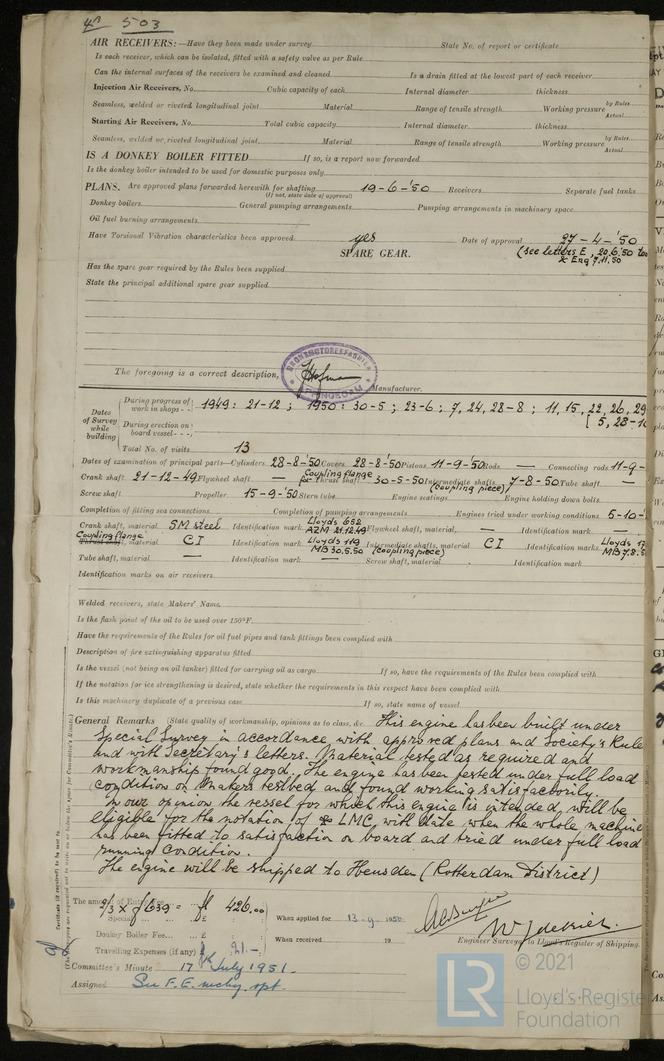 4a 503
AIR RECEIVERS:—Have they been made under survey State No. of report or certificate
Is each receiver, which can be isolated, fitted with a safety valve as per Rule
Can the internal surfaces of the receivers be examined and cleaned Is a drain fitted at the lowest part of each receiver
Injection Air Receivers, No. Cubic capacity of each Internal diameter thickness
Seamless, welded or riveted longitudinal joint Material Range of tensile strength Working pressure by Rules Actual
Starting Air Receivers, No. Total cubic capacity Internal diameter thickness
Seamless, welded or riveted longitudinal joint Material Range of tensile strength Working pressure by Rules Actual
IS A DONKEY BOILER FITTED If so, is a report now forwarded
Is the donkey boiler intended to be used for domestic purposes only
PLANS. Are approved plans forwarded herewith for shafting 19-6-'50 Receivers Separate fuel tanks
(If not, state date of approval)
Donkey boilers General pumping arrangements Pumping arrangements in machinery space
Oil fuel burning arrangements
Have Torsional Vibration characteristics been approved yes Date of approval 27-4-'50
SPARE GEAR. (see letters E, 20.6.'50
& Eng 7.11.50
Has the spare gear required by the Rules been supplied
State the principal additional spare gear supplied
The foregoing is a correct description,
BRONSMOTORENFABRIEK
APPINGEDAM
Manufacturer.
Dates of Survey while building
During progress of work in shops - - 1949: 21-12; 1950: 30-5; 23-6; 7, 24, 28-8; 11, 15, 22, 26, 29
During erection on board vessel - - - [5, 28-
Total No. of visits 13
Dates of examination of principal parts—Cylinders 28-8-'50 Covers 28-8-'50 Pistons 11-9-'50 Rods — Connecting rods 11-9-
Crank shaft 21-12-49 Flywheel shaft — Coupling flange for Thrust shaft 30-5-50 Intermediate shafts (coupling piece) 7-8-50 Tube shaft —
Screw shaft Propeller 15-9-'50 Stern tube Engine seatings Engine holding down bolts
Completion of fitting sea connections Completion of pumping arrangements Engines tried under working conditions 5-10-
Crank shaft, material SM steel Identification mark Lloyds 652 AZM 21.12.49 Flywheel shaft, material — Identification mark —
Coupling flange Thrust shaft, material CI Identification mark Lloyds 119 MB 30.5.50 Intermediate shafts, material (coupling piece) CI Identification marks Lloyds MB 7.8.
Tube shaft, material — Identification mark — Screw shaft, material Identification mark
Identification marks on air receivers
Welded receivers, state Makers' Name
Is the flash point of the oil to be used over 150°F.
Have the requirements of the Rules for oil fuel pipes and tank fittings been complied with
Description of fire extinguishing apparatus fitted
Is the vessel (not being an oil tanker) fitted for carrying oil as cargo If so, have the requirements of the Rules been complied with
If the notation for ice strengthening is desired, state whether the requirements in this respect have been complied with
Is this machinery duplicate of a previous case If so, state name of vessel
General Remarks (State quality of workmanship, opinions as to class, &c. This engine has been built under
Special Survey in accordance with approved plans and Society's Rule
and with Secretary's letters. Material tested as required and
workmanship found good. The engine has been tested under full load
condition on Makers testbed and found working satisfactorily.
In our opinion the vessel for which this engine is intended, will be
eligible for the notation of LMC with date when the whole machine
has been fitted to satisfaction on board and tried under full load
running condition.
The engine will be shipped to Heusden (Rotterdam District)
The amount of Entry Fee
2/3 x f 639 = fl 426.00
Special £ When applied for 13-9-1950
Donkey Boiler Fee £
Travelling Expenses (if any) £ 91.- When received 19
Engineer Surveyor to Lloyd's Register of Shipping.
Committee's Minute 17th July 1951.
Assigned See F.E. mchy. rpt.
LR
© 2021
Lloyd's Register
Foundation